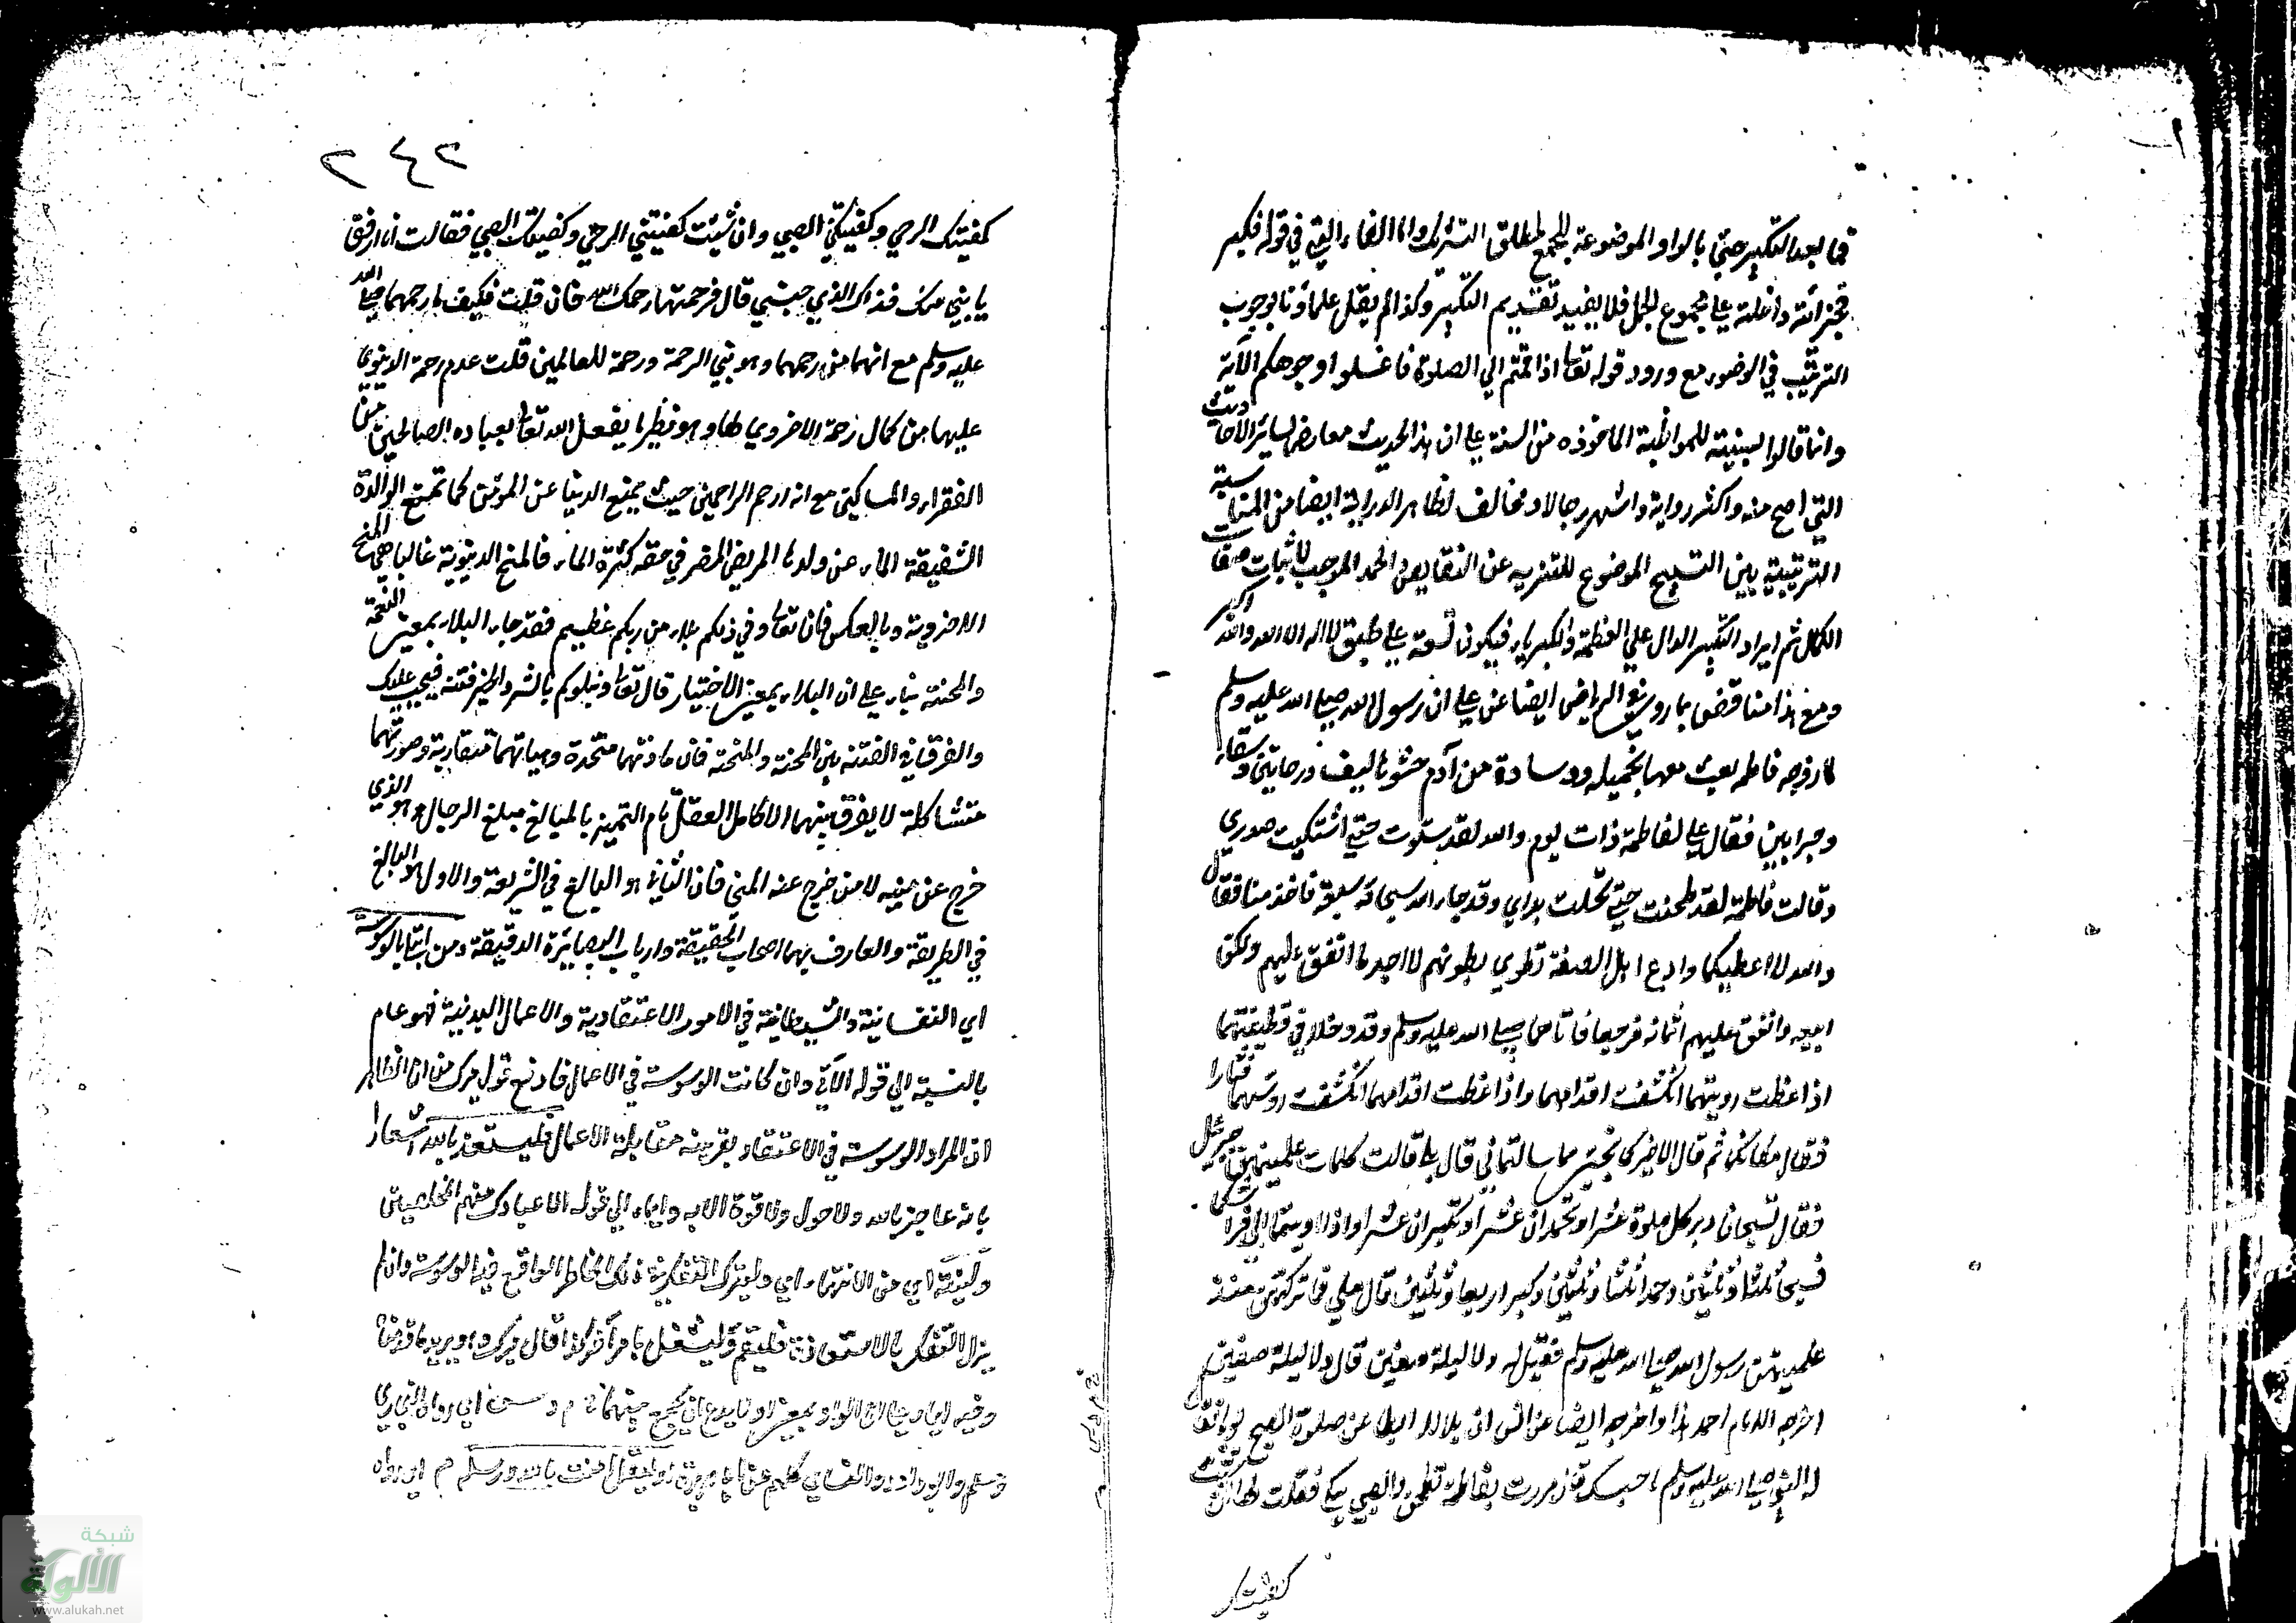 فما بعد التكبير حتى بالواو الموضوعة للجمع لمطلق التشريك واما الفاء التي في قوله فكبر
فجزائية داخلة على مجموع الجمل فلا يفيد تقديم التكبير وكذا لم يقل علماؤنا بوجوب
الترتيب في الوضوء مع ورود قوله تعالى اذا قمتم الي الصلوة فاغسلوا وجوهكم الآية
وانما قالوا بسنيته للمواظبة الماخوذه من السنة على ان هذا الحديث معارض لسائر الاحاديث
التي اصح منه واكثر رواية واشهر رجالا ومخالف لظاهر الدراية ايضا من المناسبة
الترتيبية بين التسبيح الموضوع للتنزيه عن النقايص والحمد الموجب لاثبات صفات
الكمال ثم ايراد التكبير الدال علي العظمة والكبرياء فيكون على طبق لا اله الا الله والله اكبر
ومع هذا مناقض بما روي في الرياض ايضا عن علي ان رسول الله صلى الله عليه وسلم
لما زوجه فاطمة بعث معها بخميلة ووسادة من آدم حشوها ليف ورحايتن وسقاء
وجرابين فقال علي لفاطمة ذات يوم والله لقد سنوت حتى اشتكيت صدري
وقالت فاطمة لقد طحنت حتى مجلت يداي وقد جاء الله بسعة فاخدمنا فقال
والله لا اعطيكما وادع اهل الصفة تطوي بطونهم لا اجد ما انفق عليهم ولكن
ابيعه وانفق عليهم اثمانه فرجعا فاتاهما صلى الله عليه وسلم وقد دخلا في قطيفتهما
اذا غطت رويتهما انكشفت اقدامهما واذا غطت اقدامهما انكشفت روسهما فثارا
فقال مكانكما ثم قال الا اخبركما بخير مما سالتماني قال بلى قالت كلمات علمنيهن جبرئيل
فقال تسبحان دبر كل صلوة عشرا وتحمدان عشرا وتكبران عشرا واذا اويتما الي فراشكما
فسبحا ثلثا وثلثين وحمدا ثلثا وثلثين وكبرا اربعا وثلثين قال علي فما تركتهن منذ
علمنيهن رسول الله صلى الله عليه وسلم فقيل له ولا ليلة صفين قال ولا ليلة صفين
اخرجه الامام احمد هذا واخرجه ايضا عن انس ان بلالا ابطا عن صلوة الصبح فقال
له النبي صلى الله عليه وسلم ما حبسك قال مررت بفاطمة تطحن والصبي يبكي فقلت لها ان شئت
كفيتك
٢٤٢
كفيتك الرحي وكفيتني الصبي وان شئت كفيتني الرحي وكفيتك الصبي فقالت انا ارفق
يا بني منك فذاك الذي حبسني قال فرحمتها رحمك الله فان قلت فكيف ما رحمهما صلى الله
عليه وسلم مع انهما من رحمهما وهو نبي الرحمة ورحمة للعالمين قلت عدم رحمة الدينوي
عليها من كمال رحمة الاخروي لها وهو نظير ما يفعل الله تعالى بعباده الصالحين من
الفقراء والمساكين مع انه ارحم الراحمين حيث يمنع الدنيا عن المومن كما تمنع الوالدة
الشفيقة الماء عن ولدها المريض المضر في حقه كثرة الماء فالمنح الدينوية غالبا هي المحن
الاخروية وبالعكس قال تعالى وفي ذلكم بلاء من ربكم عظيم فقد جاء البلاء بمعنى النعمة
والمحنة بناء على ان البلاء بمعنى الاختبار قال تعالى ونبلوكم بالشر والخير فتنة فيجب عليك
والفرقان في الفتنة بين المحنة والمنحة فان مادتهما متحدة وهياتهما متقاربة وصورتهما
متشاكلة لا يفرق بينهما الا كامل العقل تام التمييز بالمبالغ مبلغ الرجال وهو الذي
خرج عن منيه لا من خرج عنه المني فان الثاني هو البالغ في الشريعة والاول هو البالغ
في الطريقة والعارف بهما اصحاب الحقيقة وارباب البصائر الدقيقة ومن ابتلي بالوسوسة
اي النفسانية والشيطانية في الامور الاعتقادية والاعمال البدنية فهو عام
بالنسبة الي قوله الآتي وان كانت الوسوسة في الاعمال فادفع قول ميرك من ان الظاهر
ان المراد الوسوسة في الاعتقاد بقرينة مقابلة الاعمال فليستعذ بالله اشعارا
بانه عاجز بالله ولا حول ولا قوة الا به وايماء الي قوله الا عبادك منهم المخلصين
ولينته اي من الانتهاء اي وليترك التفكر في ذلك الخاطر الواقع فيه الوسوسة وان لم
يزل التفكر بالاستعاذة فليقم وليشتغل بامر آخر كذا قال ميرك
وفيه ايماء الى ان الواو بمعنى او خ م د س اي رواه البخاري
ومسلم وابو داود والنسائي كلهم عن ابي هريرة او ليقل آمنت بالله ورسله م اي رواه
شبكة
الألوكة
www.alukah.net